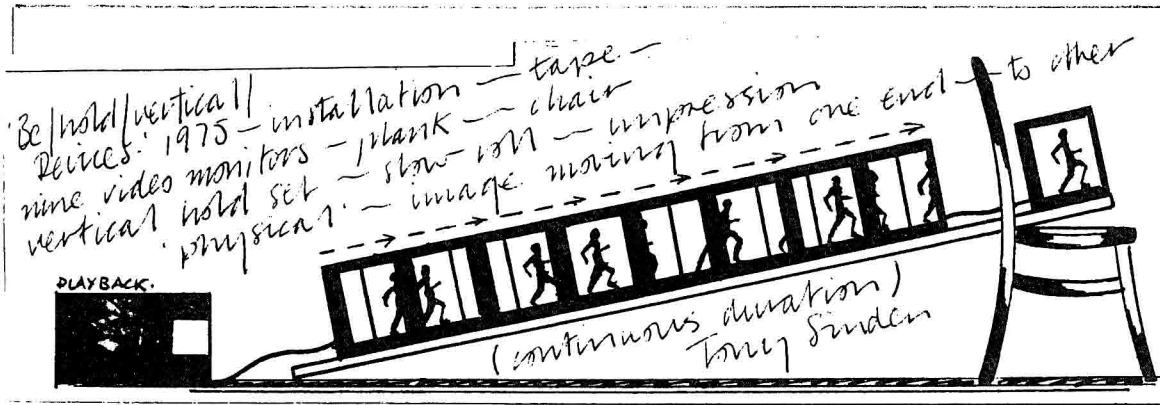 Be/hold/vertical/
Devices: 1975 – installation – tape –
nine video monitors – plank – chair
vertical hold set – slow roll – impression
'physical' – image moving from one end – to other
PLAYBACK.
(continuous duration)
Tony Sinden